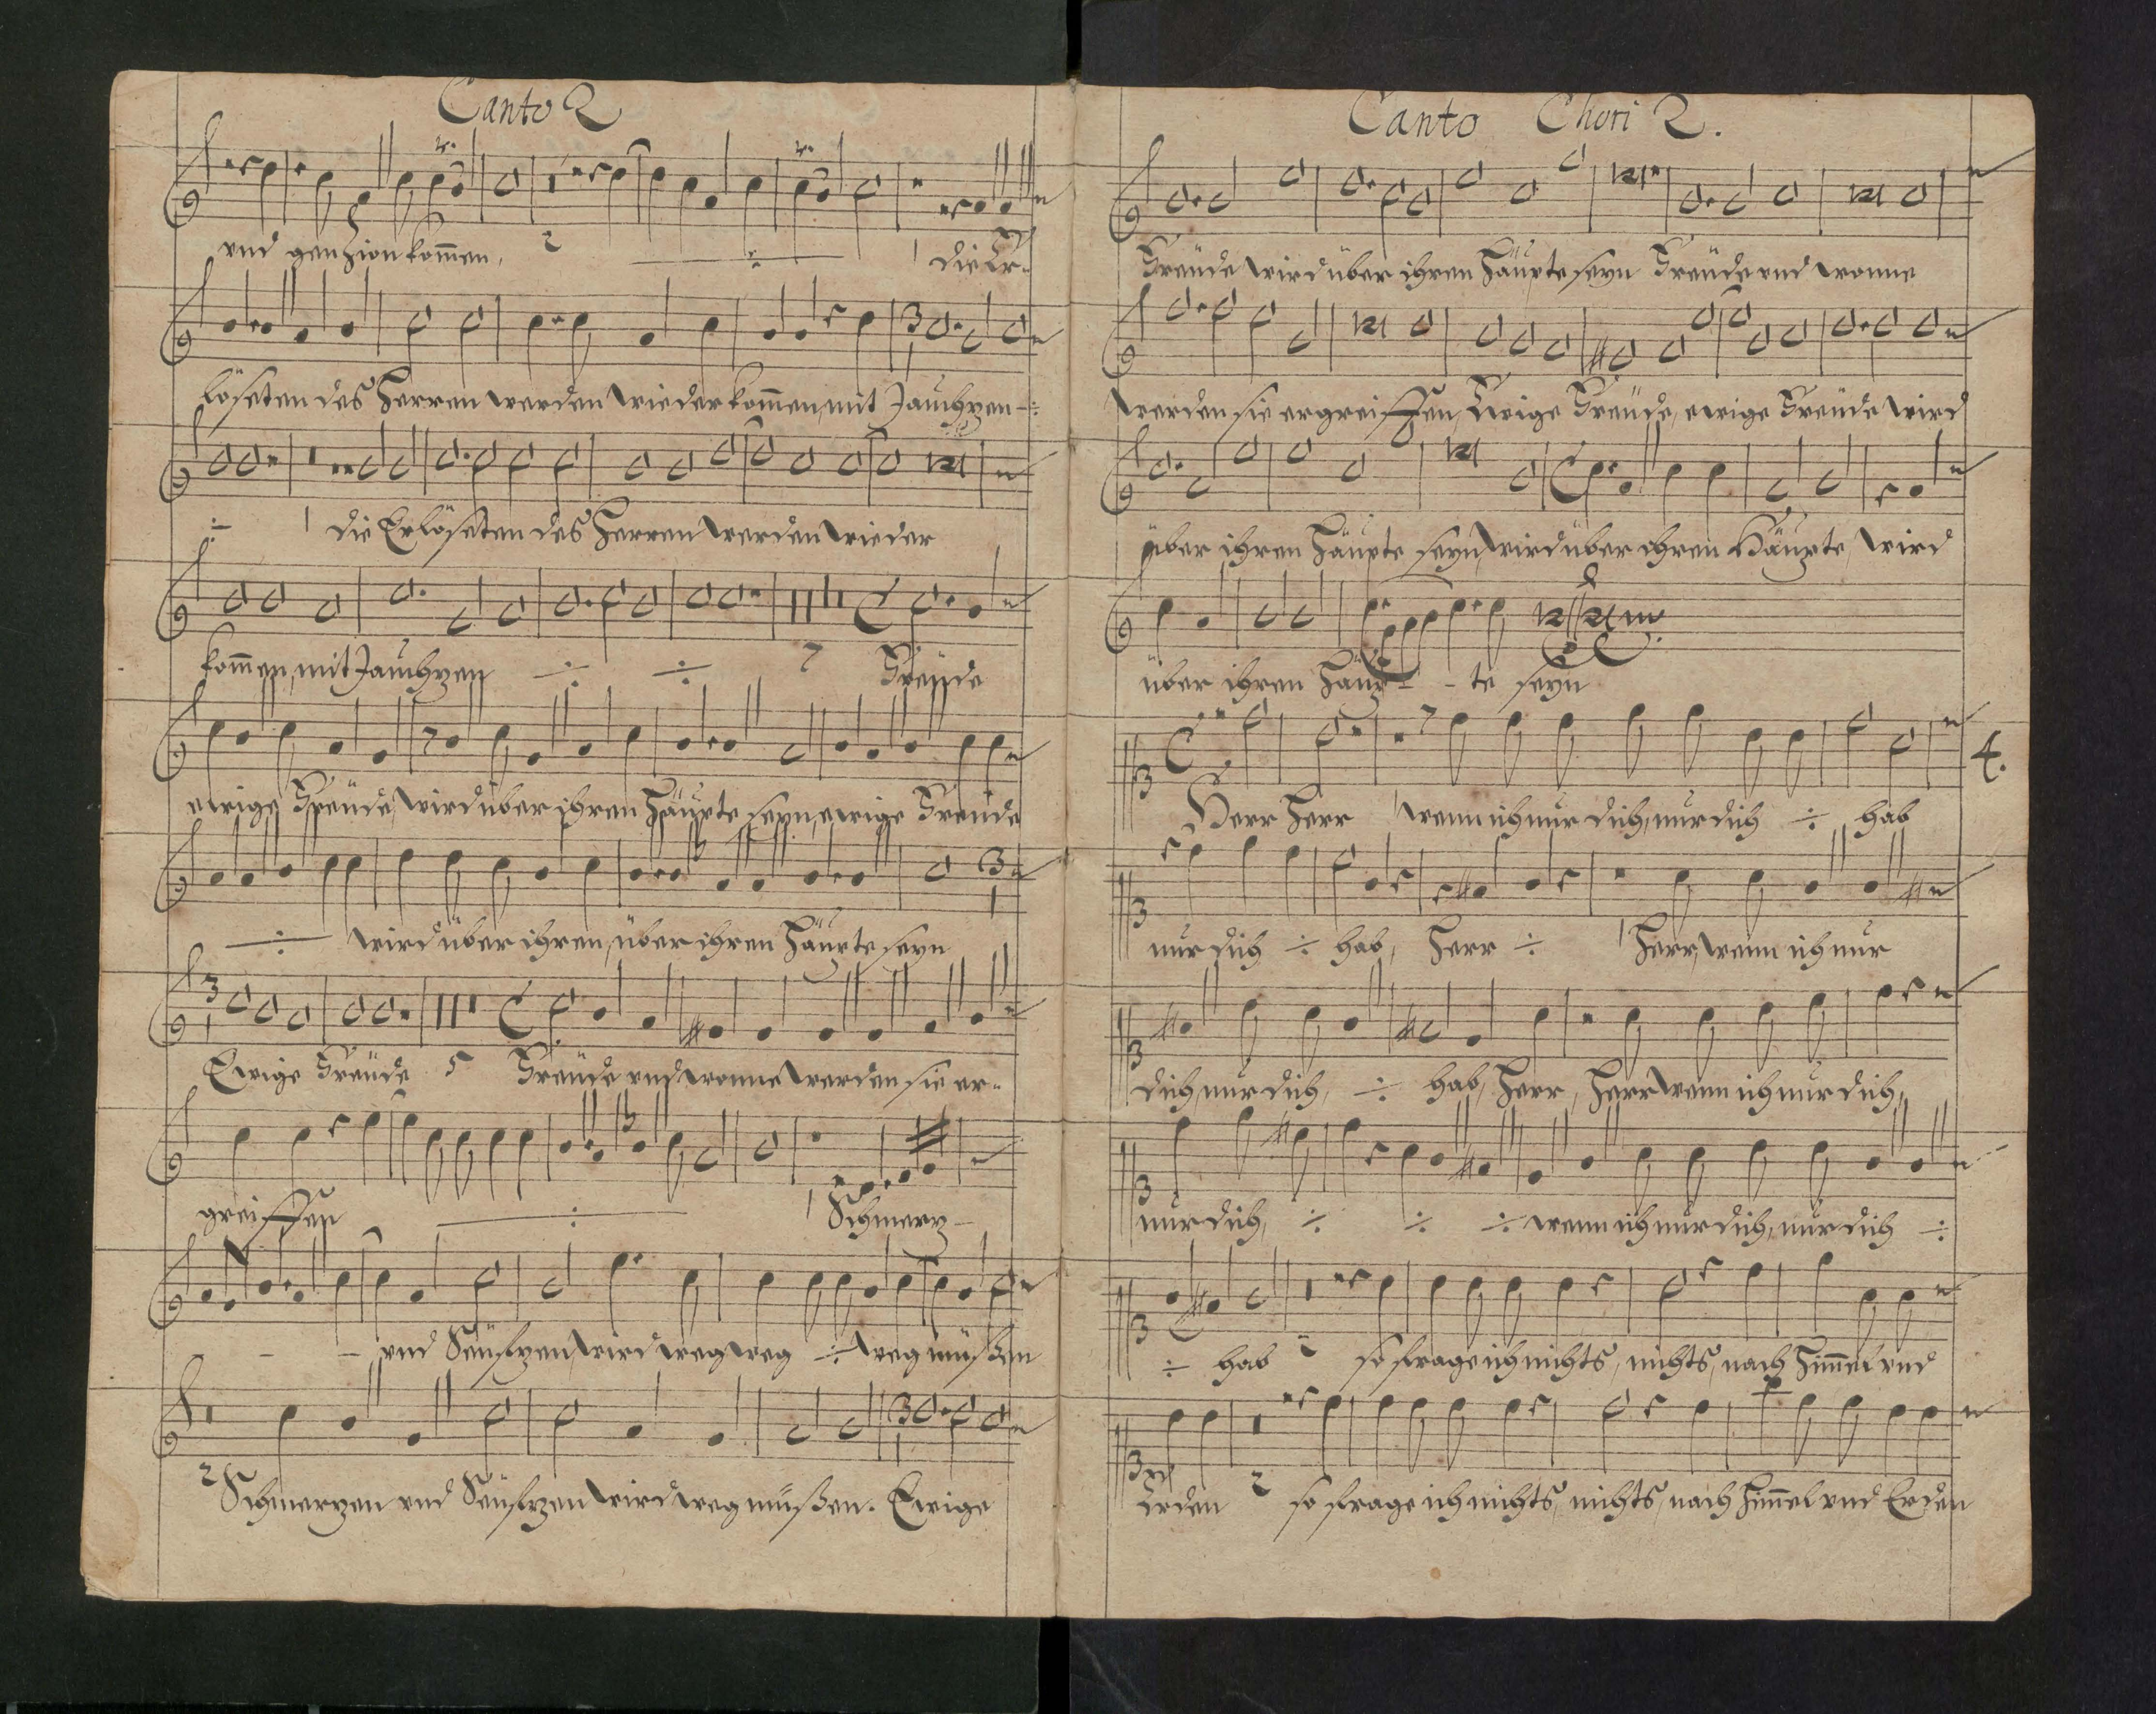 Canto 2
vnd gen Zion kom̄en, 2 ÷ 1 die Er-
löseten des Herren werden wieder kom̄en, mit Jauchzen ÷
÷ 1 die Erlöseten des Herren werden wieder
kom̄en, mit Jauchzen ÷ ÷ 7 Freüde
ewige Freüde, wird über ihren Häupte seyn, ewige Freüde
÷ wird über ihren, über ihren Häupte seyn
Ewige Freüde 5 Freüde vnd wonne werden sie er-
greiffen ÷ 1 Schmerz-
- - vnd Seüfzen, wird weg weg ÷ weg müßen
2 Schmerzen vnd Seüfzen wird weg müßen. Ewige
Canto Chori 2.
Freüde wird über ihren Häupte seyn Freüde vnd wonne
werden sie ergreiffen, Ewige Freüde, ewige Freüde wird
über ihren Häupte seyn, wird über ihren Häupte, wird
über ihren Häup- - te seyn
4.
Herr Herr 1 wenn ich nur dich, nur dich ÷ hab
nur dich ÷ hab, Herr ÷ 1 Herr, wenn ich nur
dich, nur dich, ÷ hab, Herr, Herr wenn ich nur dich,
nur dich, ÷ ÷ ÷ wenn ich nur dich, nur dich ÷
÷ hab 2 so frage ich nichts, nichts, nach Him̄el vnd
Erden 2 so frage ich nichts, nichts, nach Him̄el vnd Erden